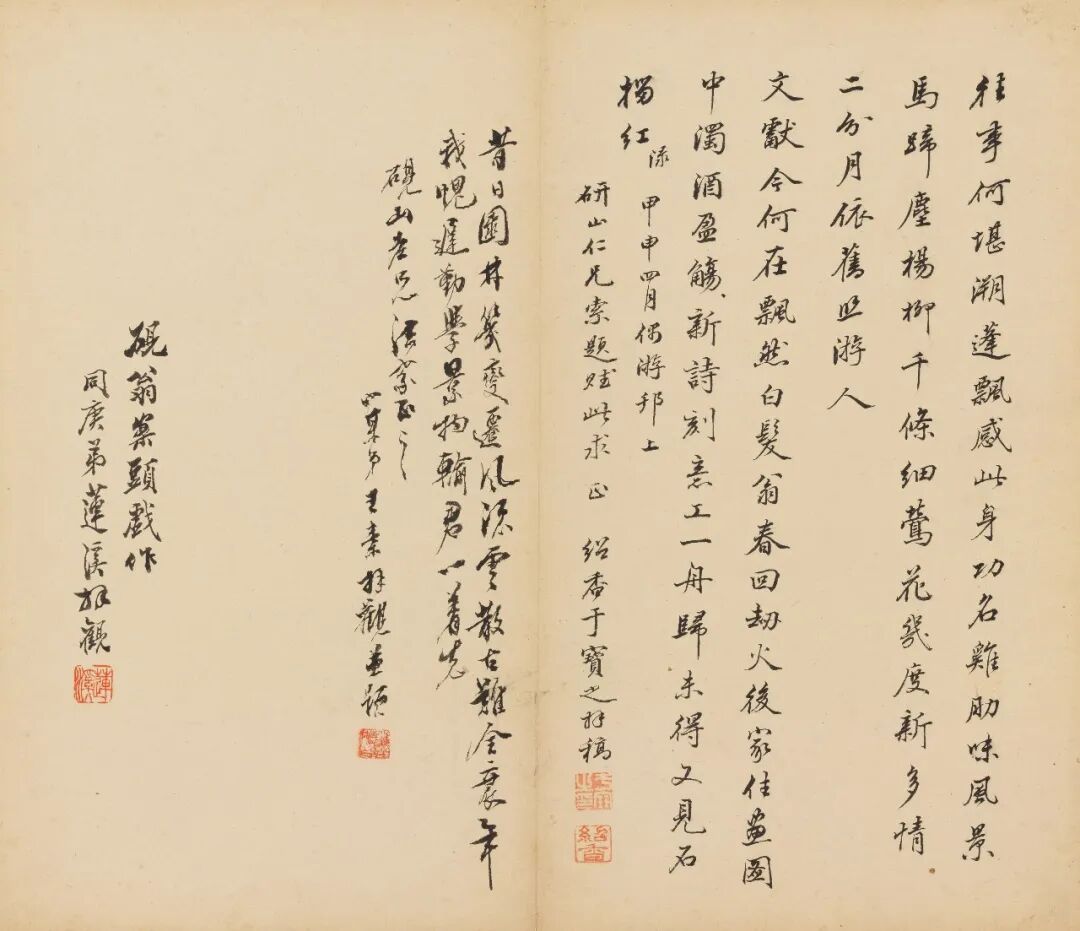 往事何堪溯蓬飄感此身功名雞肋味風景
馬蹄塵楊柳千條細鶯花幾度新多情
二分月依舊照游人
文獻今何在飄然白髮翁春回劫火後家住畫圖
中濁酒盈觴新詩刻意工一舟歸未得又見石
榴紅 甲申四月偶游邗上
研山仁兄索題賦此求正 紹香于寶之拜稿
昔日園林幾變遷風流雲散古難全衰年
我愧遲勤學景物輸君以著先
硯山老兄法家正之
小某弟王素拜觀並題
硯翁案頭戲作
同庚弟蓮溪拜觀
蓮溪
紹香